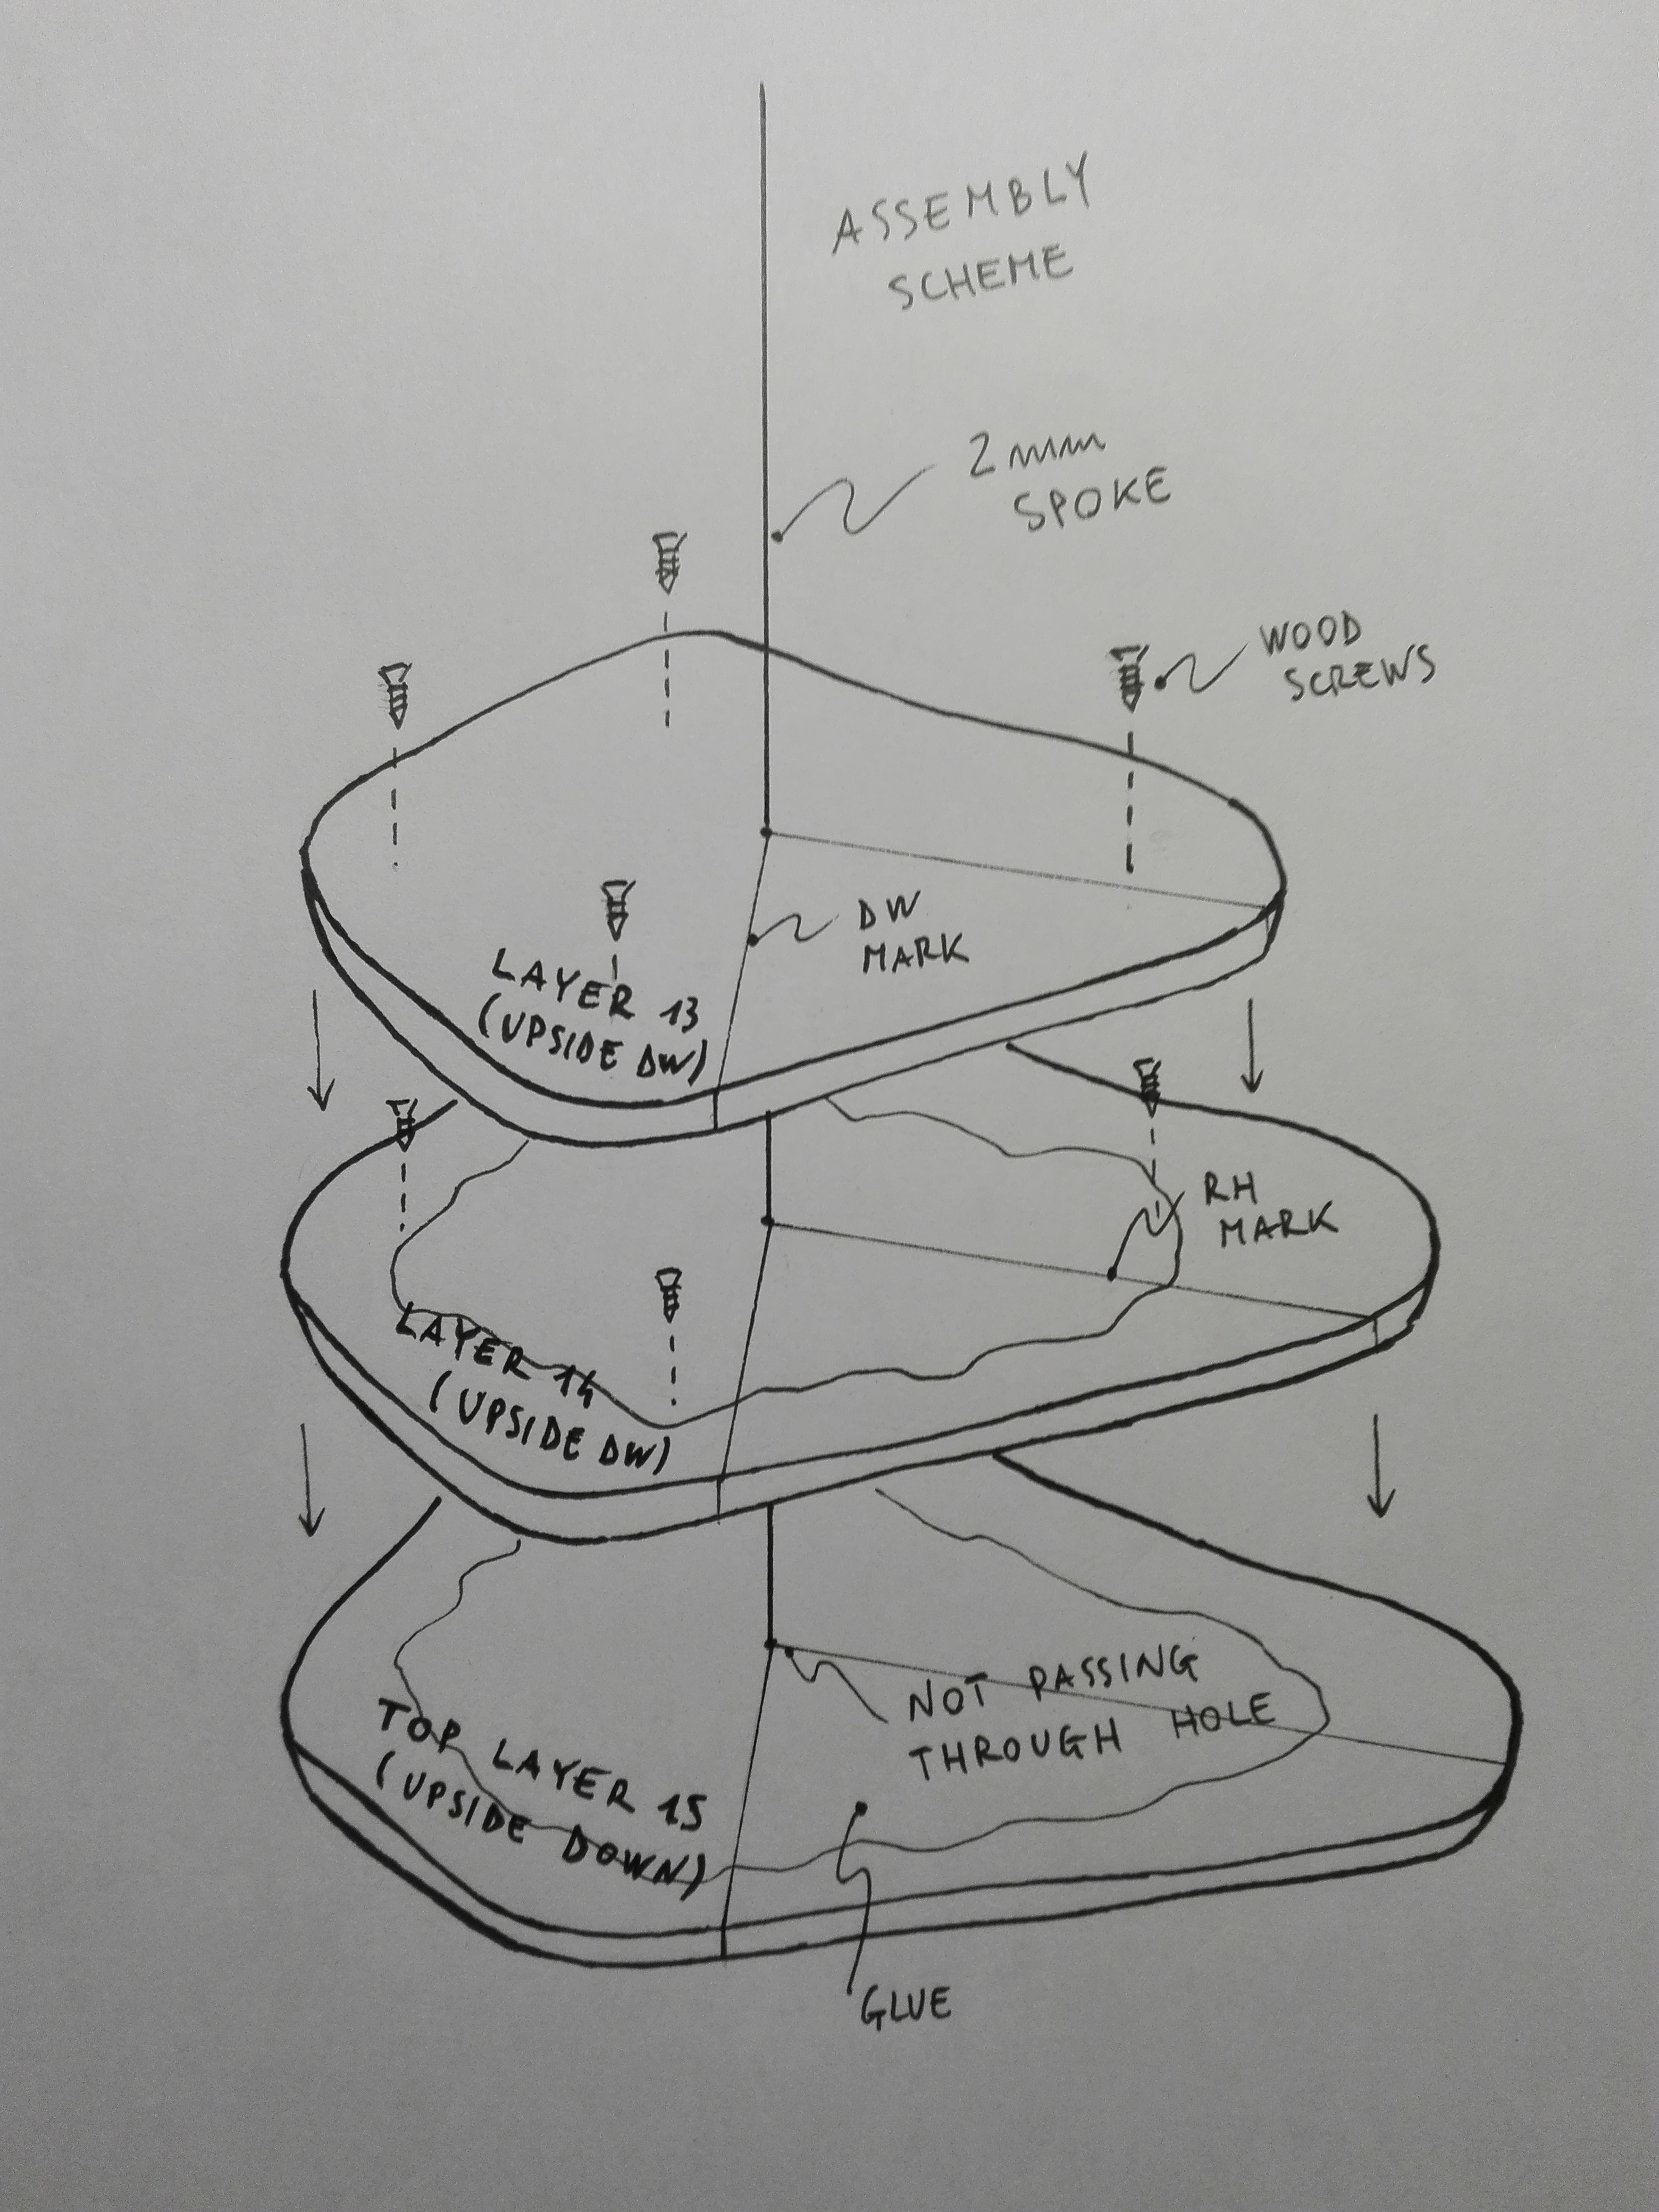 ASSEMBLY
SCHEME
2mm
SPOKE
WOOD
SCREWS
DW
MARK
LAYER 13
(UPSIDE DW)
RH
MARK
LAYER 14
(UPSIDE DW)
NOT PASSING
THROUGH HOLE
TOP LAYER 15
(UPSIDE DOWN)
GLUE